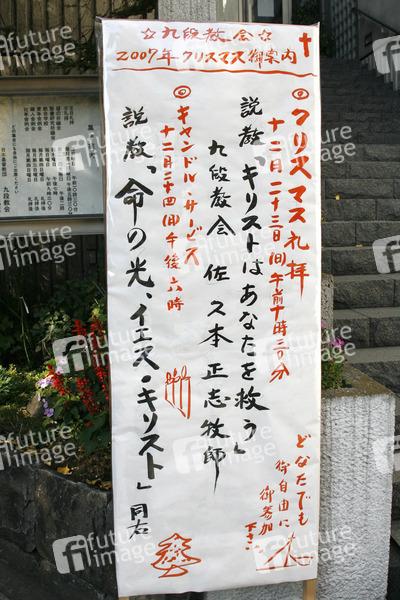 ☆九段教会☆
2007年クリスマス御案内
◎クリスマス礼拝
十二月二十三(日)午前十時三〇分
説教「キリストはあなたを救う」
九段教会 佐久本正志牧師
◎キャンドル・サービス
十二月二十四(月)午後六時
説教「命の光、イエス・キリスト」同左
どなたでも
御自由に
御参加
下さい
九段教会